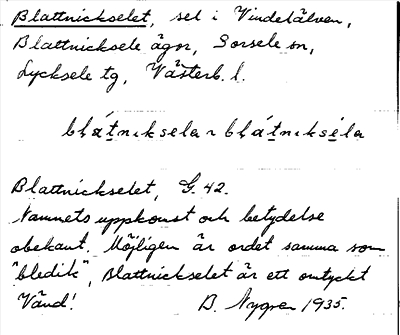 Blattnickselet, sel i Vindelälven,
Blattnicksele ägor, Sorsele sn,
Lycksele tg, Västerb. l.
blátnıksela ~ blátnıkséla
Blattnickselet, G. 42.
Namnets uppkomst och betydelse
obekant. Möjligen är ordet samma som
"bledik", Blattnickselet är ett omtyckt
Vänd! B. Nygren 1935.